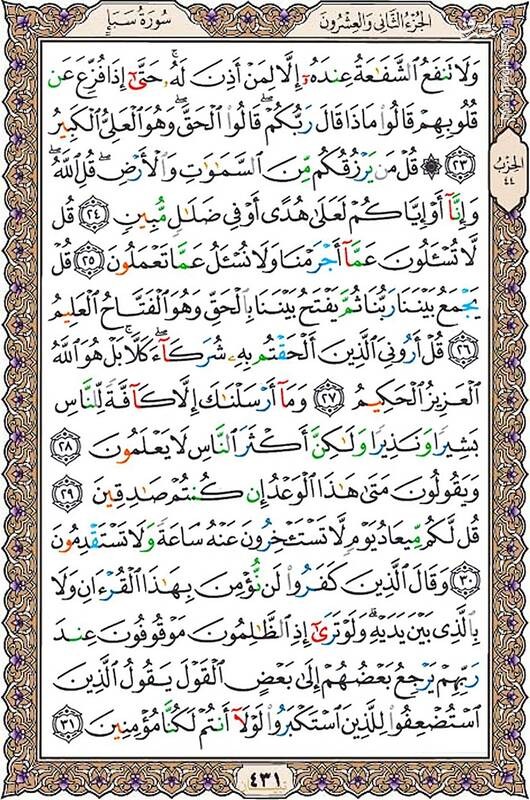 الجزء الثاني والعشرون سورة سبإ
وَلَا تَنفَعُ ٱلشَّفَٰعَةُ عِندَهُۥٓ إِلَّا لِمَنْ أَذِنَ لَهُۥ ۚ حَتَّىٰٓ إِذَا فُزِّعَ عَن
قُلُوبِهِمْ قَالُوا۟ مَاذَا قَالَ رَبُّكُمْ ۖ قَالُوا۟ ٱلْحَقَّ ۖ وَهُوَ ٱلْعَلِىُّ ٱلْكَبِيرُ
﴿٢٣﴾ ۞ قُلْ مَن يَرْزُقُكُم مِّنَ ٱلسَّمَٰوَٰتِ وَٱلْأَرْضِ ۖ قُلِ ٱللَّهُ ۖ
وَإِنَّآ أَوْ إِيَّاكُمْ لَعَلَىٰ هُدًى أَوْ فِى ضَلَٰلٍ مُّبِينٍ ﴿٢٤﴾ قُل
لَّا تُسْـَٔلُونَ عَمَّآ أَجْرَمْنَا وَلَا نُسْـَٔلُ عَمَّا تَعْمَلُونَ ﴿٢٥﴾ قُلْ
يَجْمَعُ بَيْنَنَا رَبُّنَا ثُمَّ يَفْتَحُ بَيْنَنَا بِٱلْحَقِّ وَهُوَ ٱلْفَتَّاحُ ٱلْعَلِيمُ
﴿٢٦﴾ قُلْ أَرُونِىَ ٱلَّذِينَ أَلْحَقْتُم بِهِۦ شُرَكَآءَ ۖ كَلَّا ۚ بَلْ هُوَ ٱللَّهُ
ٱلْعَزِيزُ ٱلْحَكِيمُ ﴿٢٧﴾ وَمَآ أَرْسَلْنَٰكَ إِلَّا كَآفَّةً لِّلنَّاسِ
بَشِيرًا وَنَذِيرًا وَلَٰكِنَّ أَكْثَرَ ٱلنَّاسِ لَا يَعْلَمُونَ ﴿٢٨﴾
وَيَقُولُونَ مَتَىٰ هَٰذَا ٱلْوَعْدُ إِن كُنتُمْ صَٰدِقِينَ ﴿٢٩﴾
قُل لَّكُم مِّيعَادُ يَوْمٍ لَّا تَسْتَـْٔخِرُونَ عَنْهُ سَاعَةً وَلَا تَسْتَقْدِمُونَ
﴿٣٠﴾ وَقَالَ ٱلَّذِينَ كَفَرُوا۟ لَن نُّؤْمِنَ بِهَٰذَا ٱلْقُرْءَانِ وَلَا
بِٱلَّذِى بَيْنَ يَدَيْهِ ۗ وَلَوْ تَرَىٰٓ إِذِ ٱلظَّٰلِمُونَ مَوْقُوفُونَ عِندَ
رَبِّهِمْ يَرْجِعُ بَعْضُهُمْ إِلَىٰ بَعْضٍ ٱلْقَوْلَ يَقُولُ ٱلَّذِينَ
ٱسْتُضْعِفُوا۟ لِلَّذِينَ ٱسْتَكْبَرُوا۟ لَوْلَآ أَنتُمْ لَكُنَّا مُؤْمِنِينَ ﴿٣١﴾
الحزب
٤٤
٤٣١